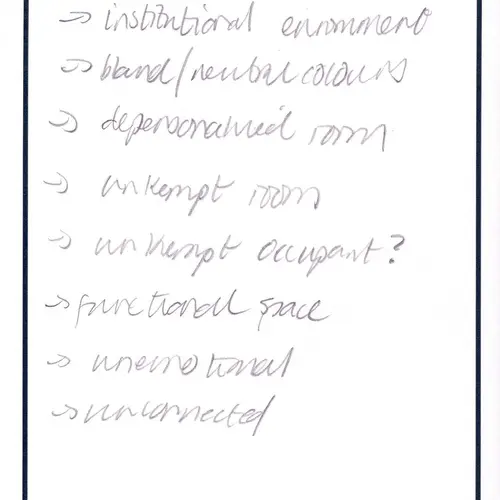 → institutional enironment
→ bland/neutral colours
→ depersonalised room
→ unkempt room
→ unkempt occupant?
→ functional space
→ unemotional
→ unconnected